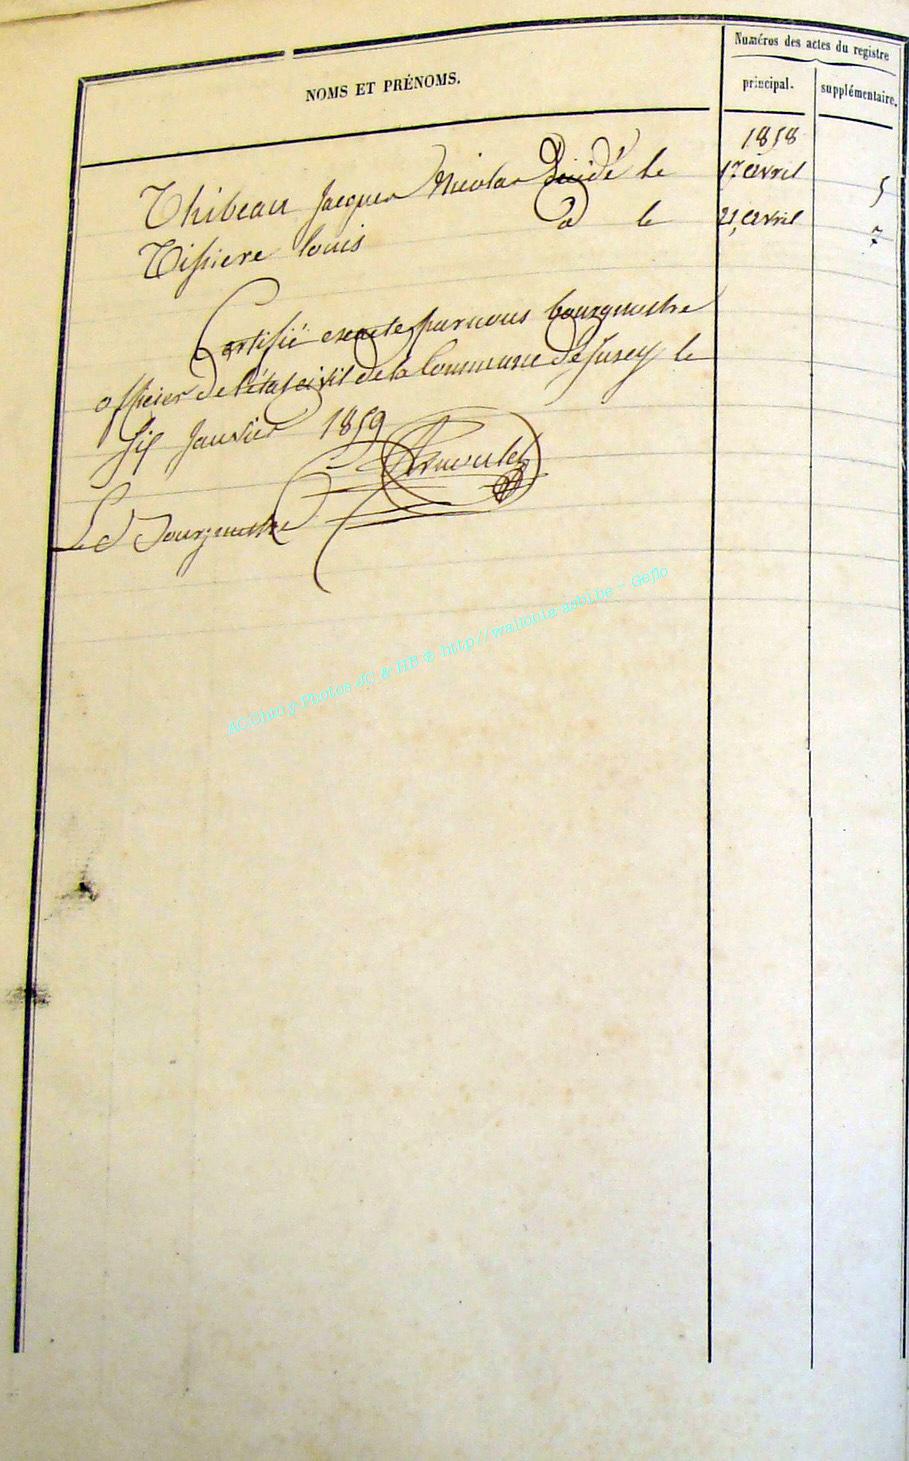 NOMS ET PRÉNOMS.
Numéros des actes du registre
principal.
supplémentaire.
1858
Thibeau Jacques Nicolas Décidé le 17 avril 5
Tissiere louis d le 21, avril 7
Certifié exacte par nous bourgmestre
officier de l'état civil de la Commune de Jusey le
six Janvier 1859
Le Bourgmestre
ACChiny-Photos JC & HB ® http//wallonia.asbl.be - Geflo